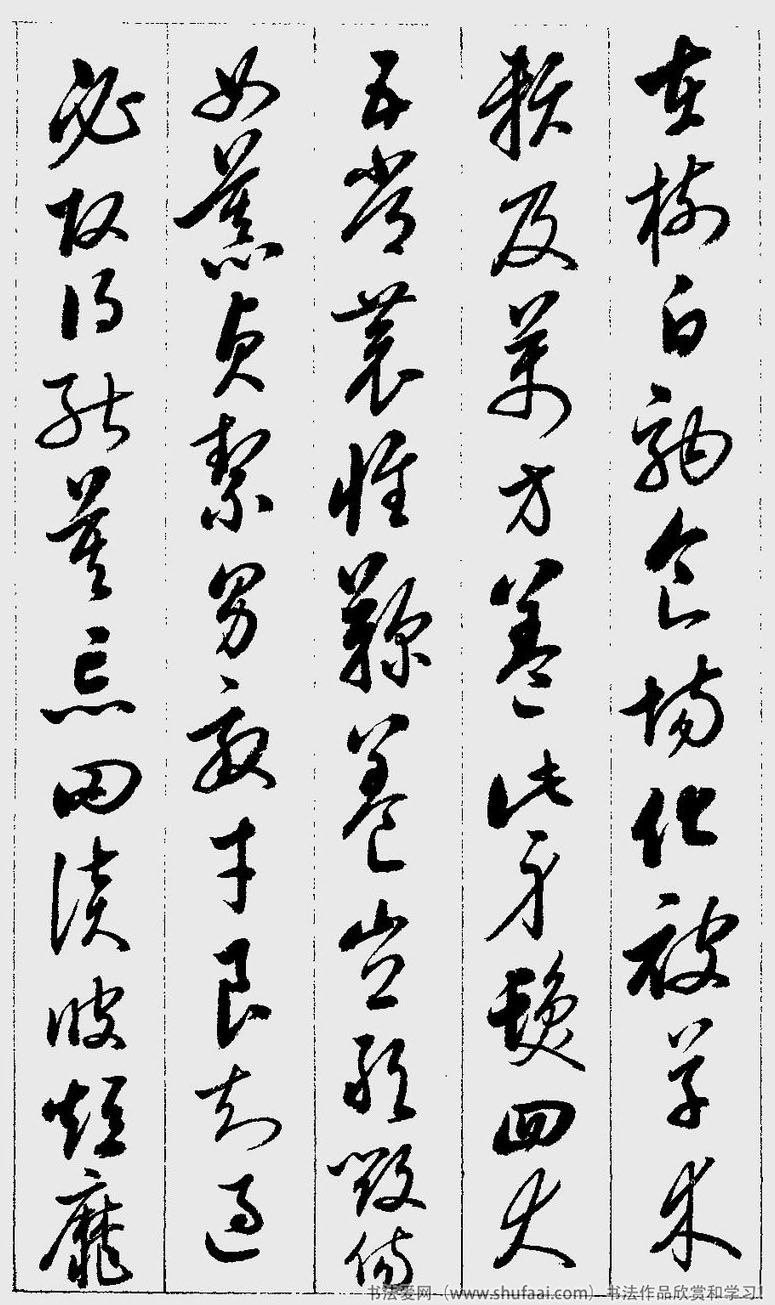 在樹白駒食場化被草木
賴及萬方蓋此身髮四大
五常恭惟鞠養豈敢毀傷
女慕貞絜男效才良知過
必改得能莫忘罔談彼短靡
书法爱网（www.shufaai.com）书法作品欣赏和学习!